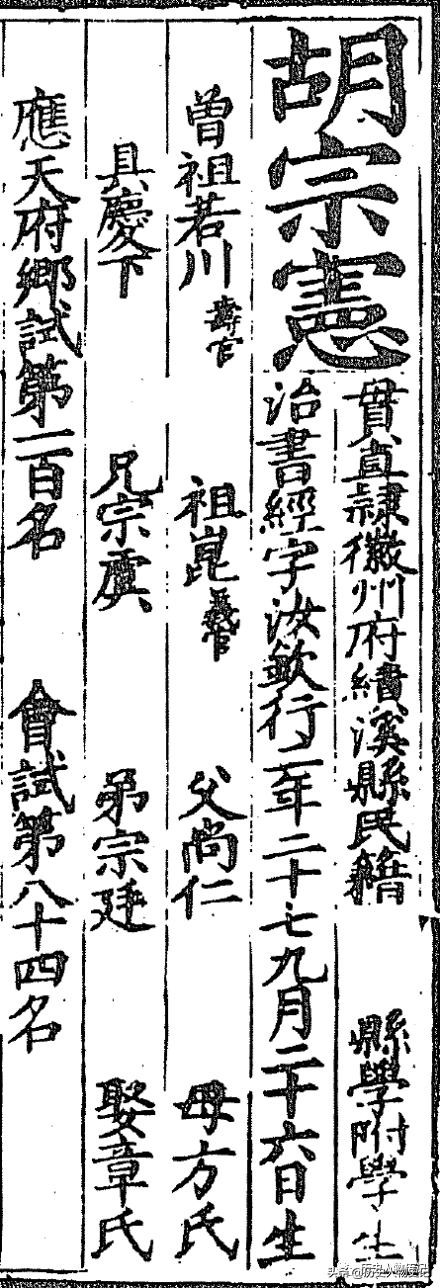 胡宗憲
貫直隸徽州府績溪縣民籍 縣學附學生
治書經字汝欽行二年二十七九月二十六日生
曾祖若川壽官 祖崑義官 父尚仁 母方氏
具慶下 兄宗虞 弟宗廷 娶章氏
應天府鄉試第一百名 會試第八十四名
头条@历史人物传记